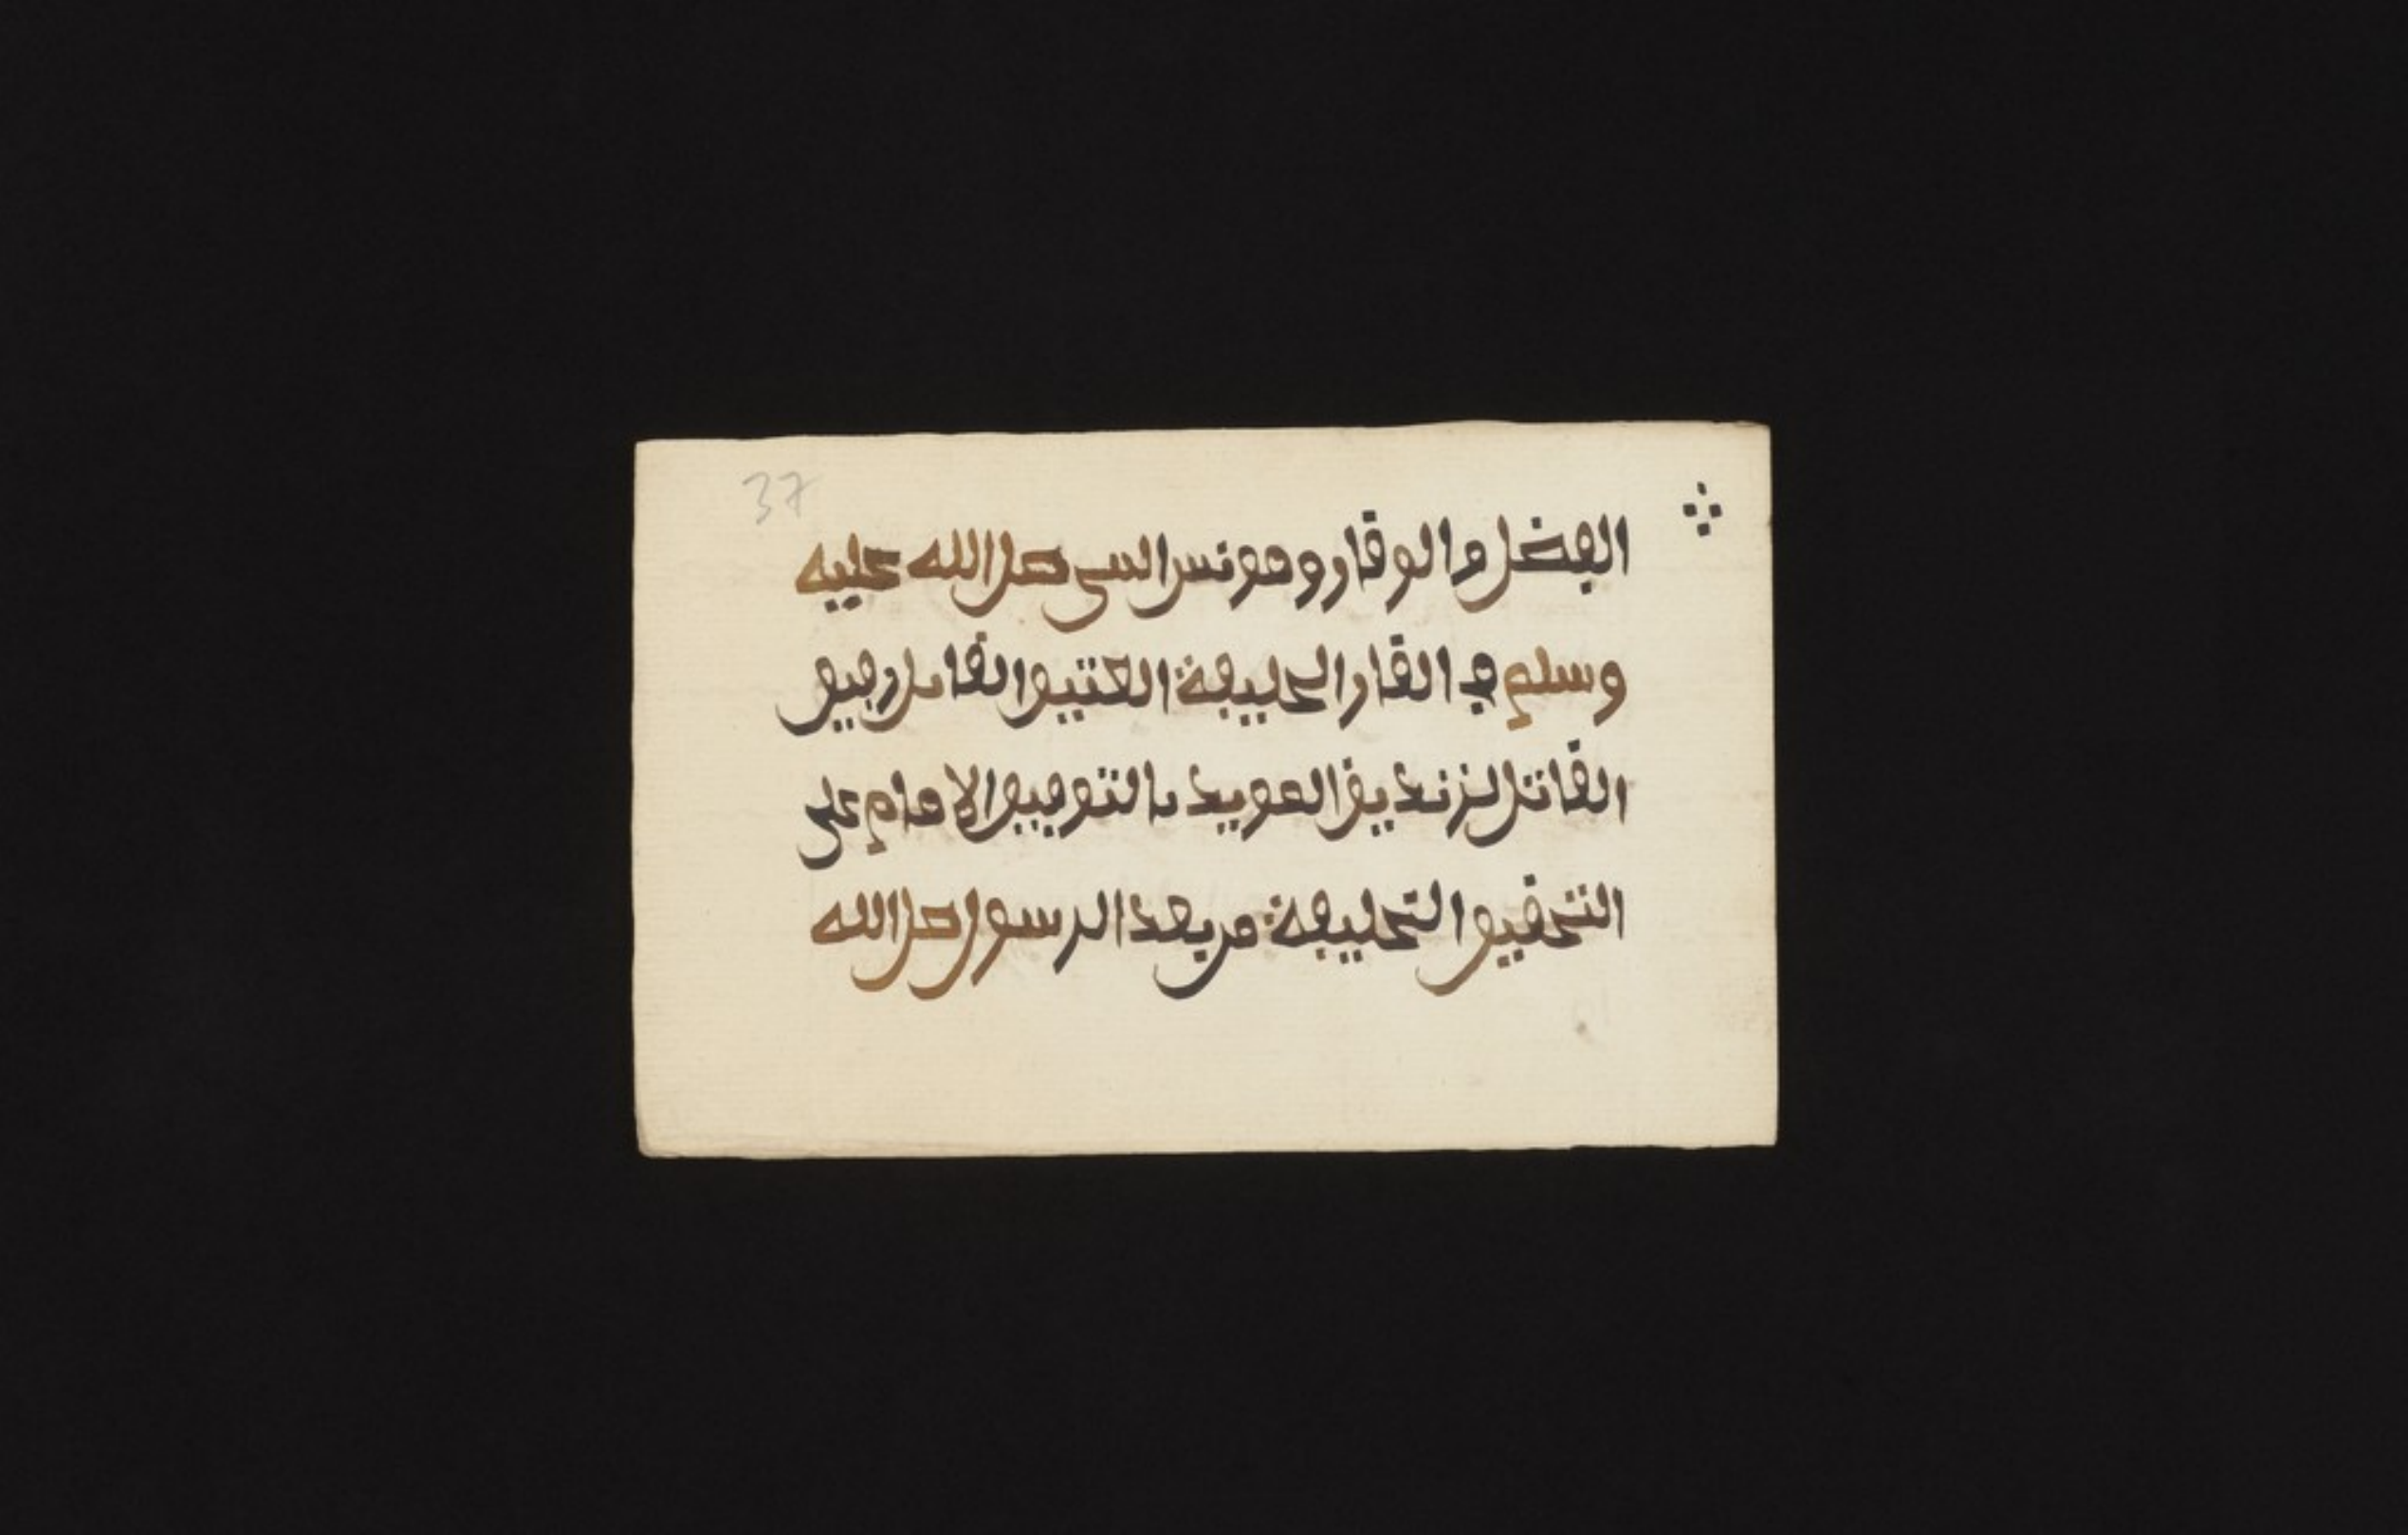 37
الفضل والوقار ومونس النبي صلى الله عليه
وسلم في الغار الخليفة العتيق القايل رفيق
القاتل لزنديق المويد بالتوفيق الامام على
التحقيق الخليفة من بعد الرسول صلى الله